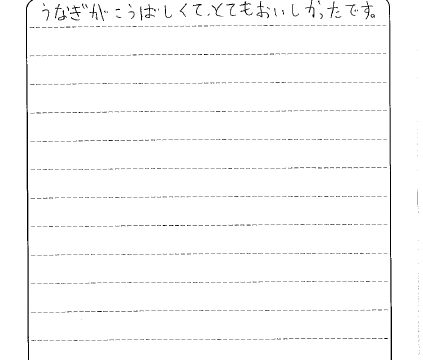 うなぎがこうばしくて、とてもおいしかったです。